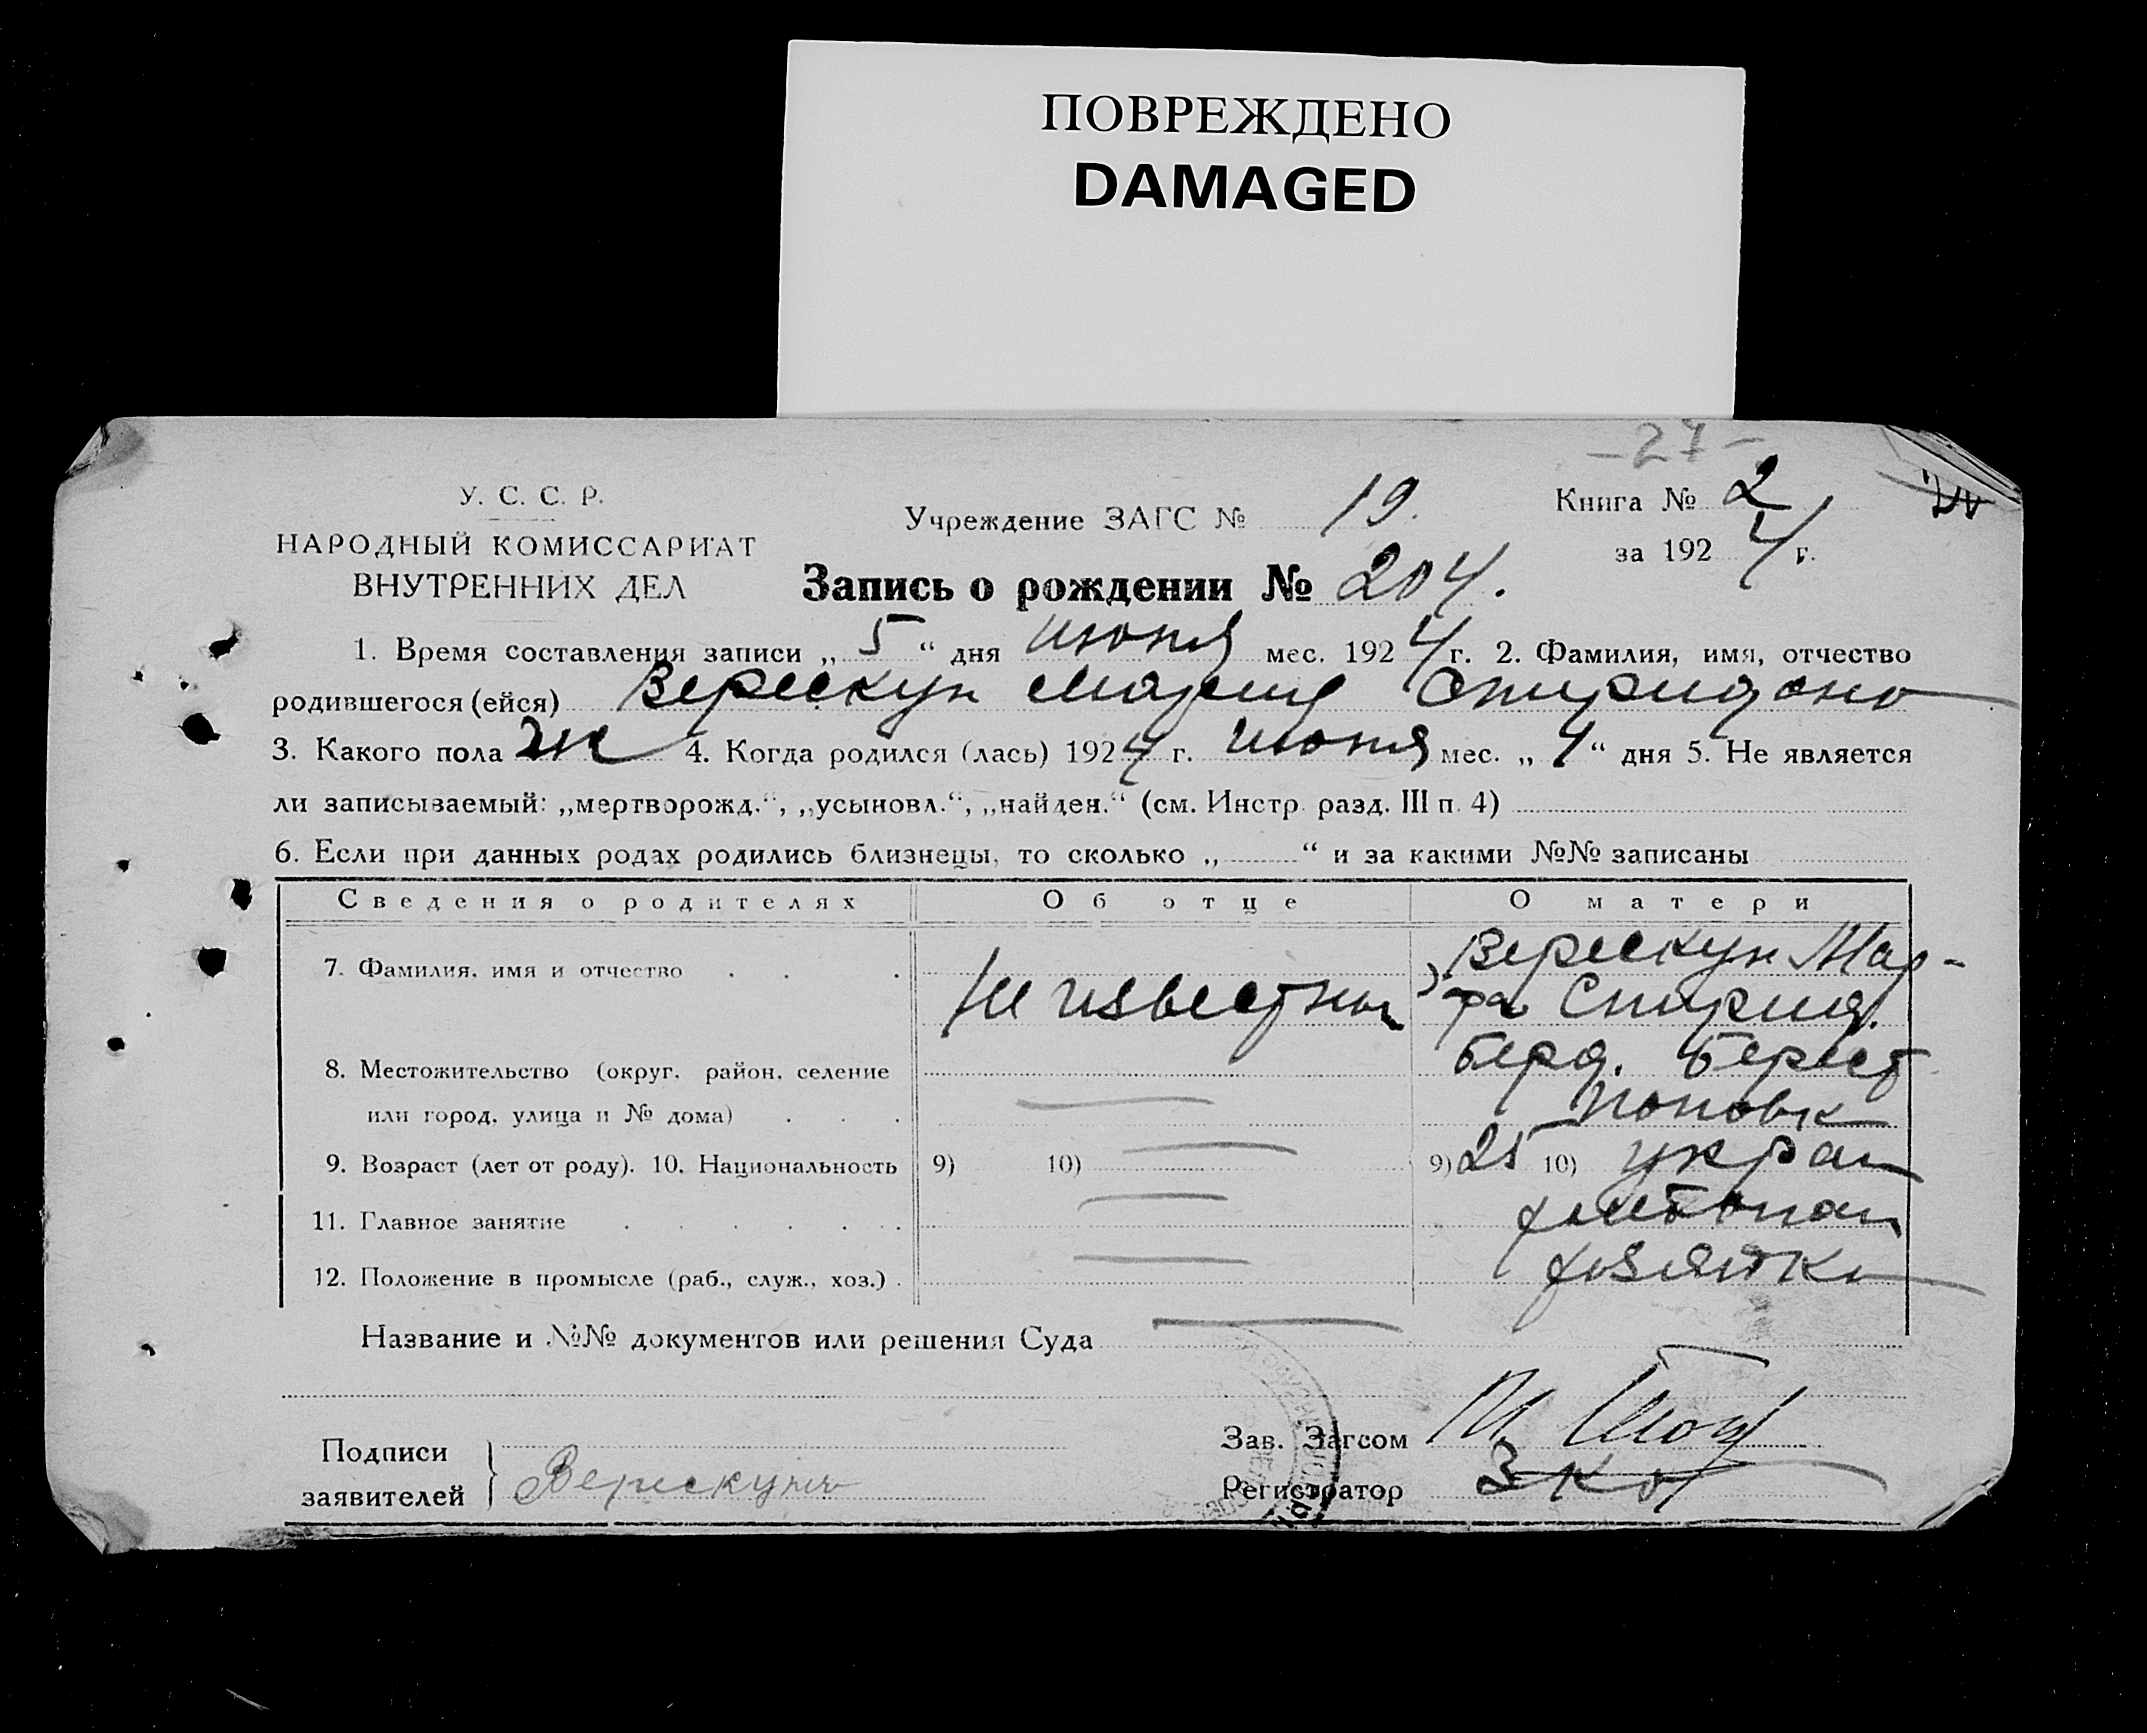 ПОВРЕЖДЕНО
DAMAGED
- 27 -
У. С. С. Р.
НАРОДНЫЙ КОМИССАРИАТ
ВНУТРЕННИХ ДЕЛ
Учреждение ЗАГС № 19.
Книга № 2
за 1924 г.
Запись о рождении № 204.
1. Время составления записи „ 5 “ дня июня мес. 1924 г. 2. Фамилия, имя, отчество
родившегося (ейся)Верескун Мария Спиридоно
3. Какого пола Ж 4. Когда родился (лась) 1924 г. июня мес. „ 4 “ дня 5. Не является
ли записываемый: „мертворожд.“, „усыновл.“, „найден.“ (см. Инстр. разд. III п. 4)
6. Если при данных родах родились близнецы, то сколько „ “ и за какими №№ записаны
Сведения о родителях Об отце О матери
7. Фамилия, имя и отчество Не известны Верескун Мар-
фа Спирид.
8. Местожительство (округ, район, селение Берд. Берест
или город, улица и № дома) Поповк
9. Возраст (лет от роду). 10. Национальность 9) 10) 9) 25 10) украи
11. Главное занятие хлебопаш
12. Положение в промысле (раб., служ., хоз.) хозяйка
Название и №№ документов или решения Суда
Подписи
заявителей } Верескун
Зав. Загсом
Регистратор